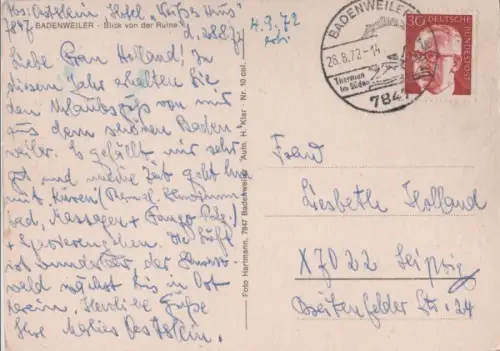 Abs: Oestlein, Hotel "Kurhaus"
7847 BADENWEILER - Blick von der Ruine d. 28.8.72
4.9.72
Liebe Frau Holland! In
diesem Jahr erhalten Sie
den Urlaubsgruß von mir
aus dem schönen Baden-
weiler. Es gefällt mir sehr
gut und meine Zeit geht hin
mit Kuren (Thermal
bad, Massagen + Fango
+ Spazierengehen. Die Luft
ist wunderbar der Schwarz-
wald nächst bis in Ort
herein. Herzliche Grüße
Ihre Marlies Oestlein.
Foto Hartmann, 7847 Badenweiler Autn. H. Klar · Nr. 10 col.
BADENWEILER
28.8.72-14
Thermen
im Süden
7847
30
DEUTSCHE
BUNDESPOST
Frau
Liesbeth Holland
X7022 Leipzig
Breitenfelder Str. 24